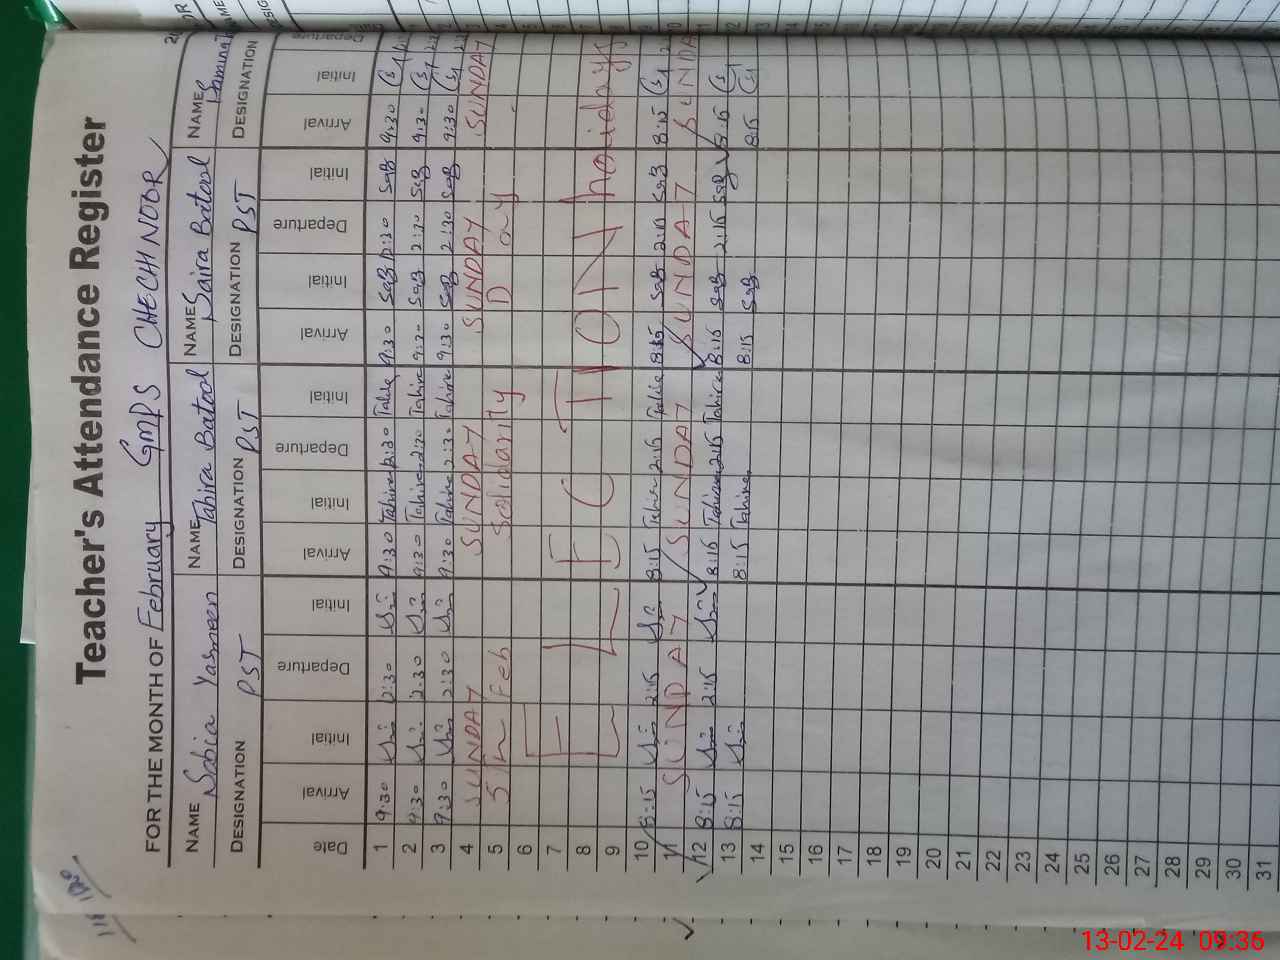 Teacher's Attendance Register
FOR THE MONTH OF February GMPS CHECHI NOOR
NAME Sobia Yasmeen NAME Tahira Batool NAME Saira Batool NAME
DESIGNATION PST DESIGNATION PST DESIGNATION PST DESIGNATION
Date Arrival Initial Departure Initial Arrival Initial Departure Initial Arrival Initial Departure Initial Arrival Initial Departure
1 9:30 2:30 9:30 Tahira 2:30 9:30 SaB 2:30 SaB 9:30
2 9:30 2:30 9:30 Tahira 2:30 Tahira 9:30 SaB 2:30 SaB 9:30
3 9:30 2:30 9:30 Tahira 2:30 Tahira 9:30 SaB 2:30 SaB 9:30
4 SUNDAY SUNDAY SUNDAY SUNDAY SUNDAY
5 5th Feb Solidarity Day
6
7 ELECTION holidays
8
9
10 8:15 2:15 8:15 2:15 8:15 SaB 2:15 SaB 8:15
11 SUNDAY SUNDAY SUNDAY SUNDAY
12 8:15 2:15 8:15 Tahira 2:15 Tahira 8:15 SaB 2:15 SaB 8:15
13 8:15 8:15 Tahira 8:15 SaB 8:15
14
15
16
17
18
19
20
21
22
23
24
25
26
27
28
29
30
31
13-02-24 09:36